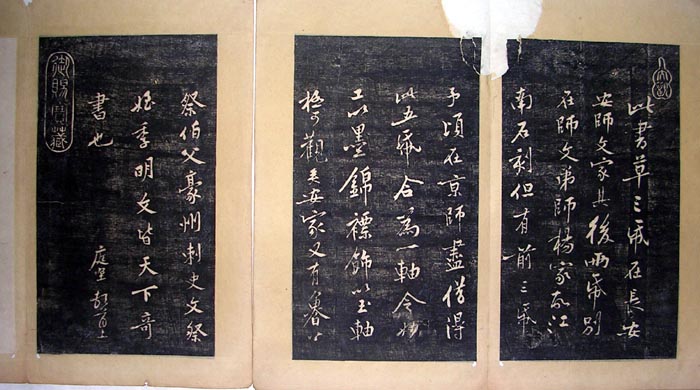 此書草三帋在長安
安師文家其後兩帋别
在師文弟師楊家故江
南石刻但有前三帋
予頃在京師盡借得
此五帋合爲一軸令妙
工以墨錦褾飾以玉軸
極可觀矣安家又有魯公
祭伯父豪州刺史文祭
姪季明文皆天下奇
書也
庭堅
御賜寶藏